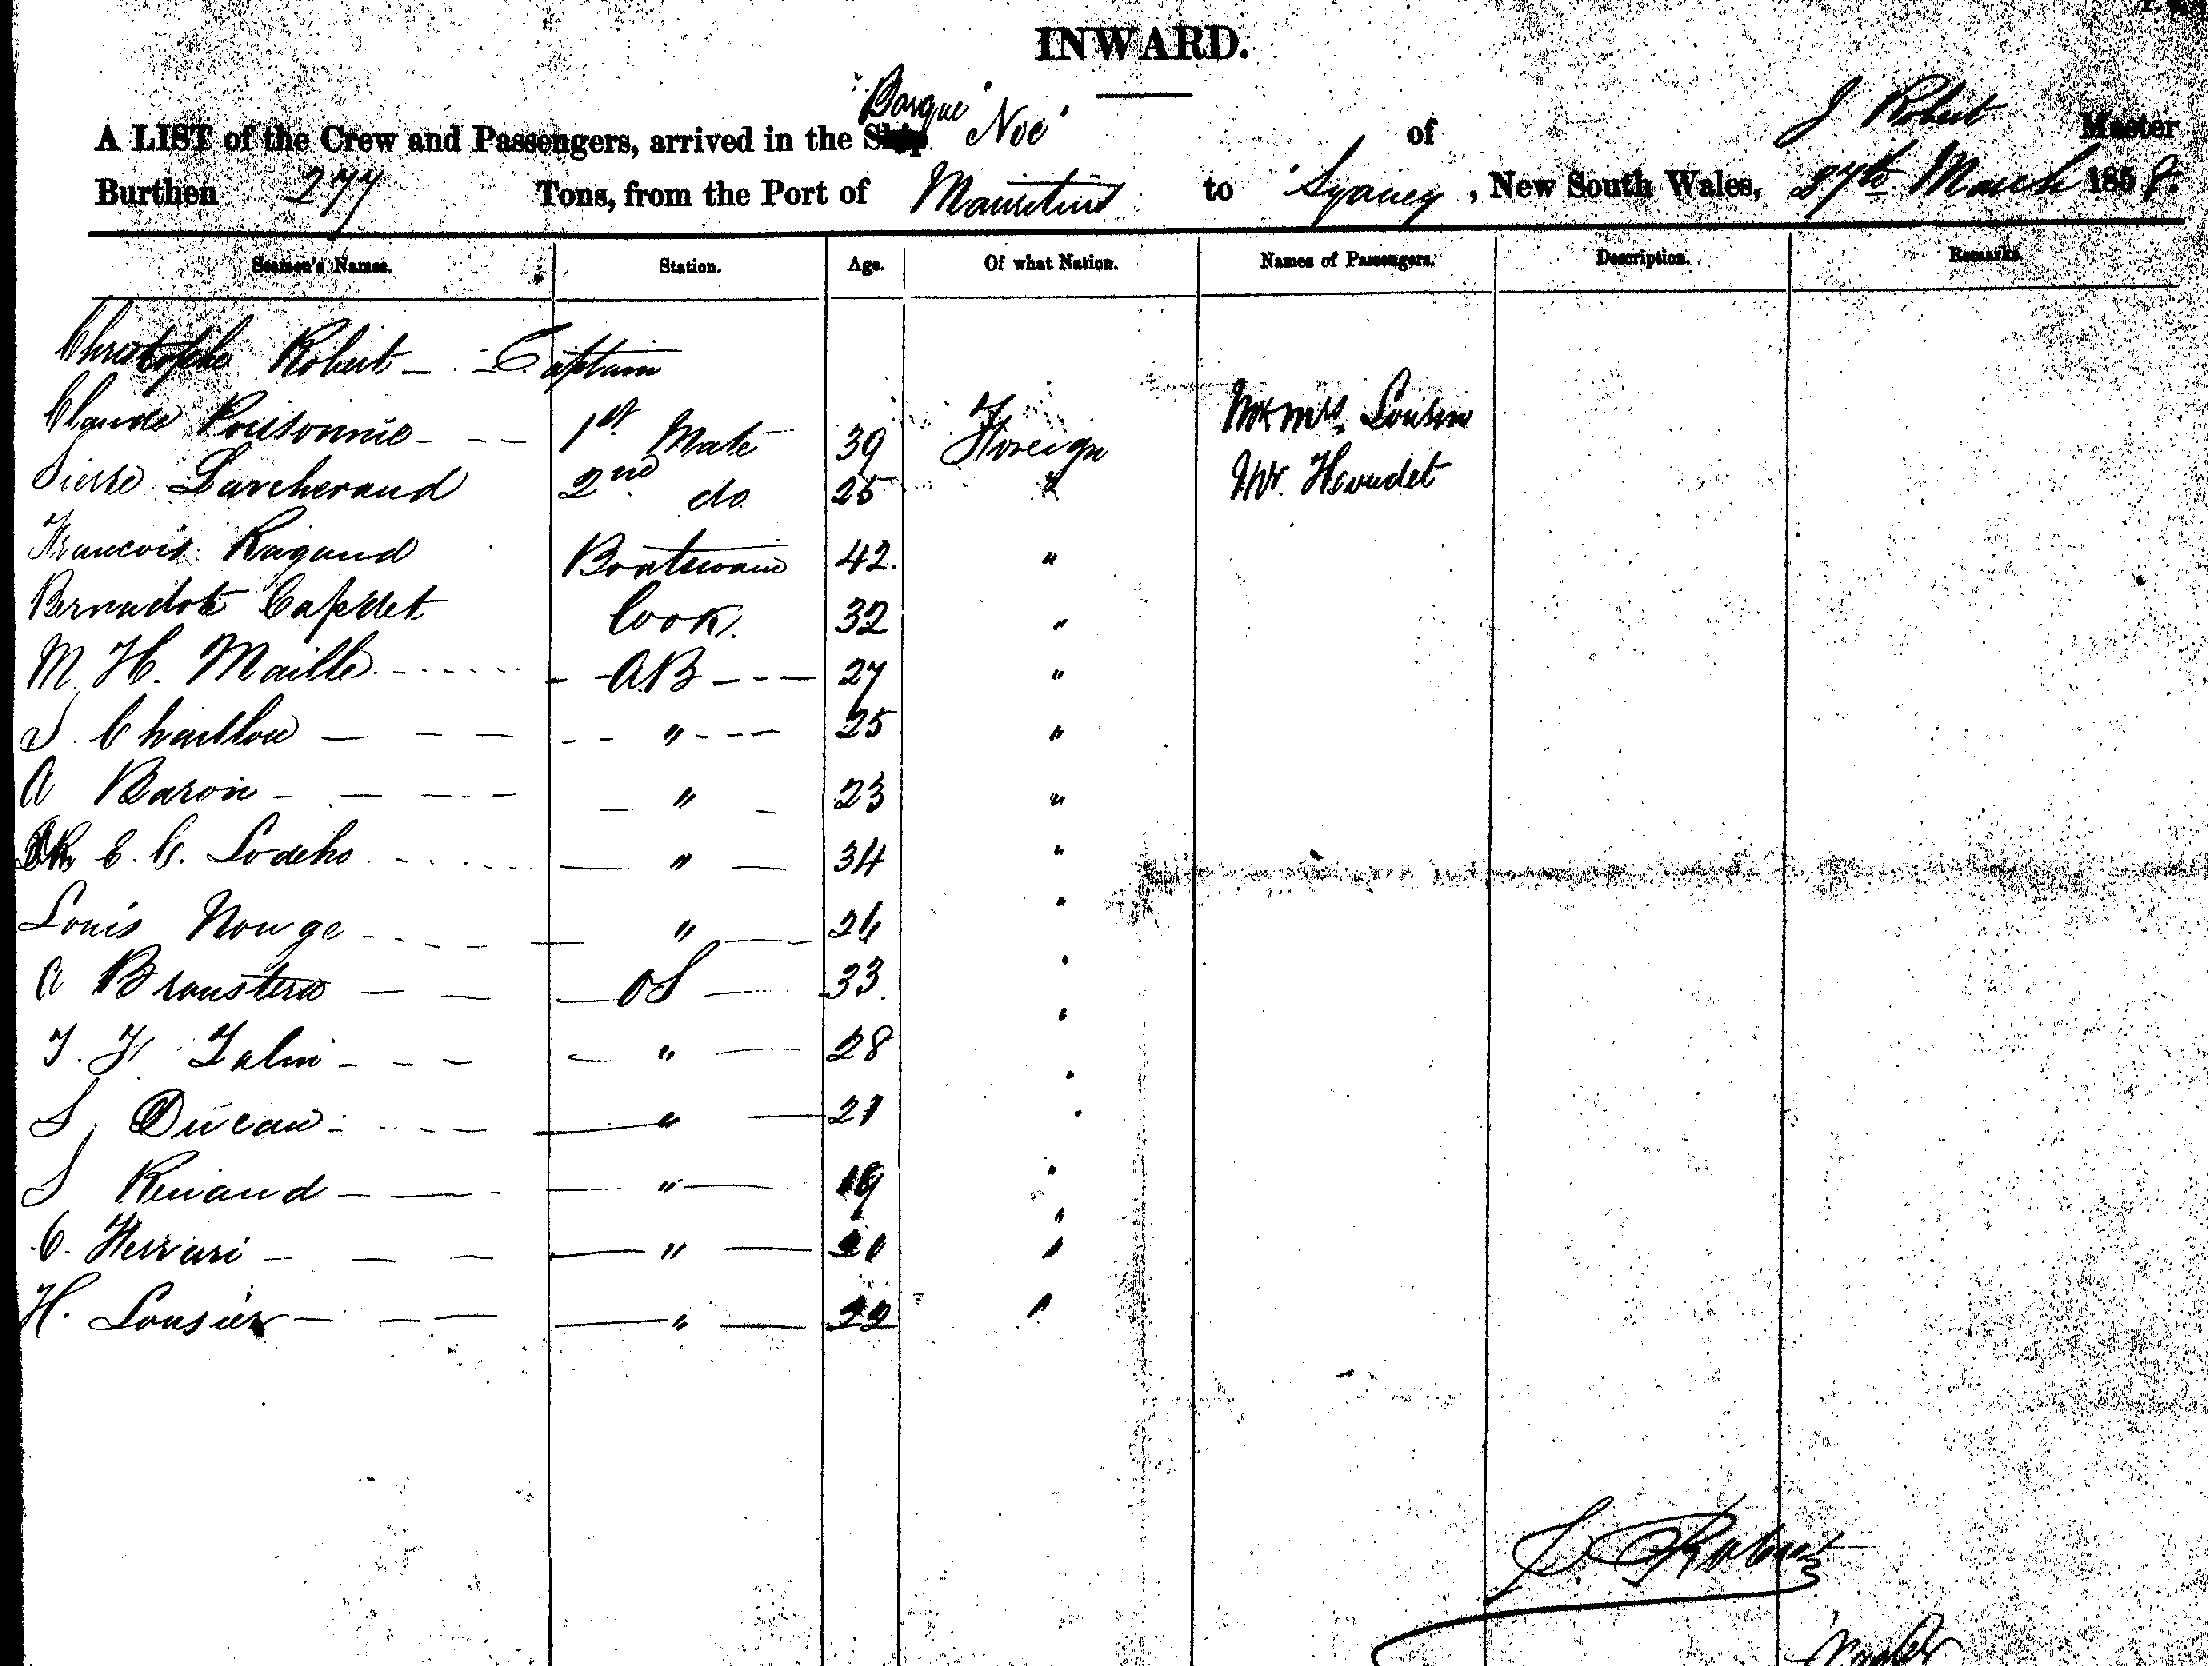 INWARD.
Barque
A LIST of the Crew and Passengers, arrived in the Ship "Noé" of J Robert Master
Burthen 277 Tons, from the Port of Mauritius to Sydney, New South Wales, 27th March 1858.
Seamen's Names. Station. Age. Of what Nation. Names of Passengers. Description. Remarks.
Christophe Robert - Captain
Claude Poissonnie - - - 1st Mate 39 Foreign Mr & Mrs. Lousier
Pierre Larcheraud 2nd do 25 " Mr. Heurdet
Francois Rigaud Boatswain 42. "
Bernadot Capdet Cook. 32 "
M. H. Maille - - - - - AB - - - 27 "
S. Chaillou - - - - " - - - 25 "
A Baron - - - - - " - 23 "
C. C. Lodeho - - - - - " - 34 "
Louis Nouge - - - - - " - 26 "
A Bronstera - - - OS - 33. "
J. F. Talin - - - - " - 28 "
S. Ducau - - - - - " - 21 "
S Renaud - - - - " - 19 "
C. Herrari - - - - " - "
H. Lousier - - - - " - 22 "
Robert
Master